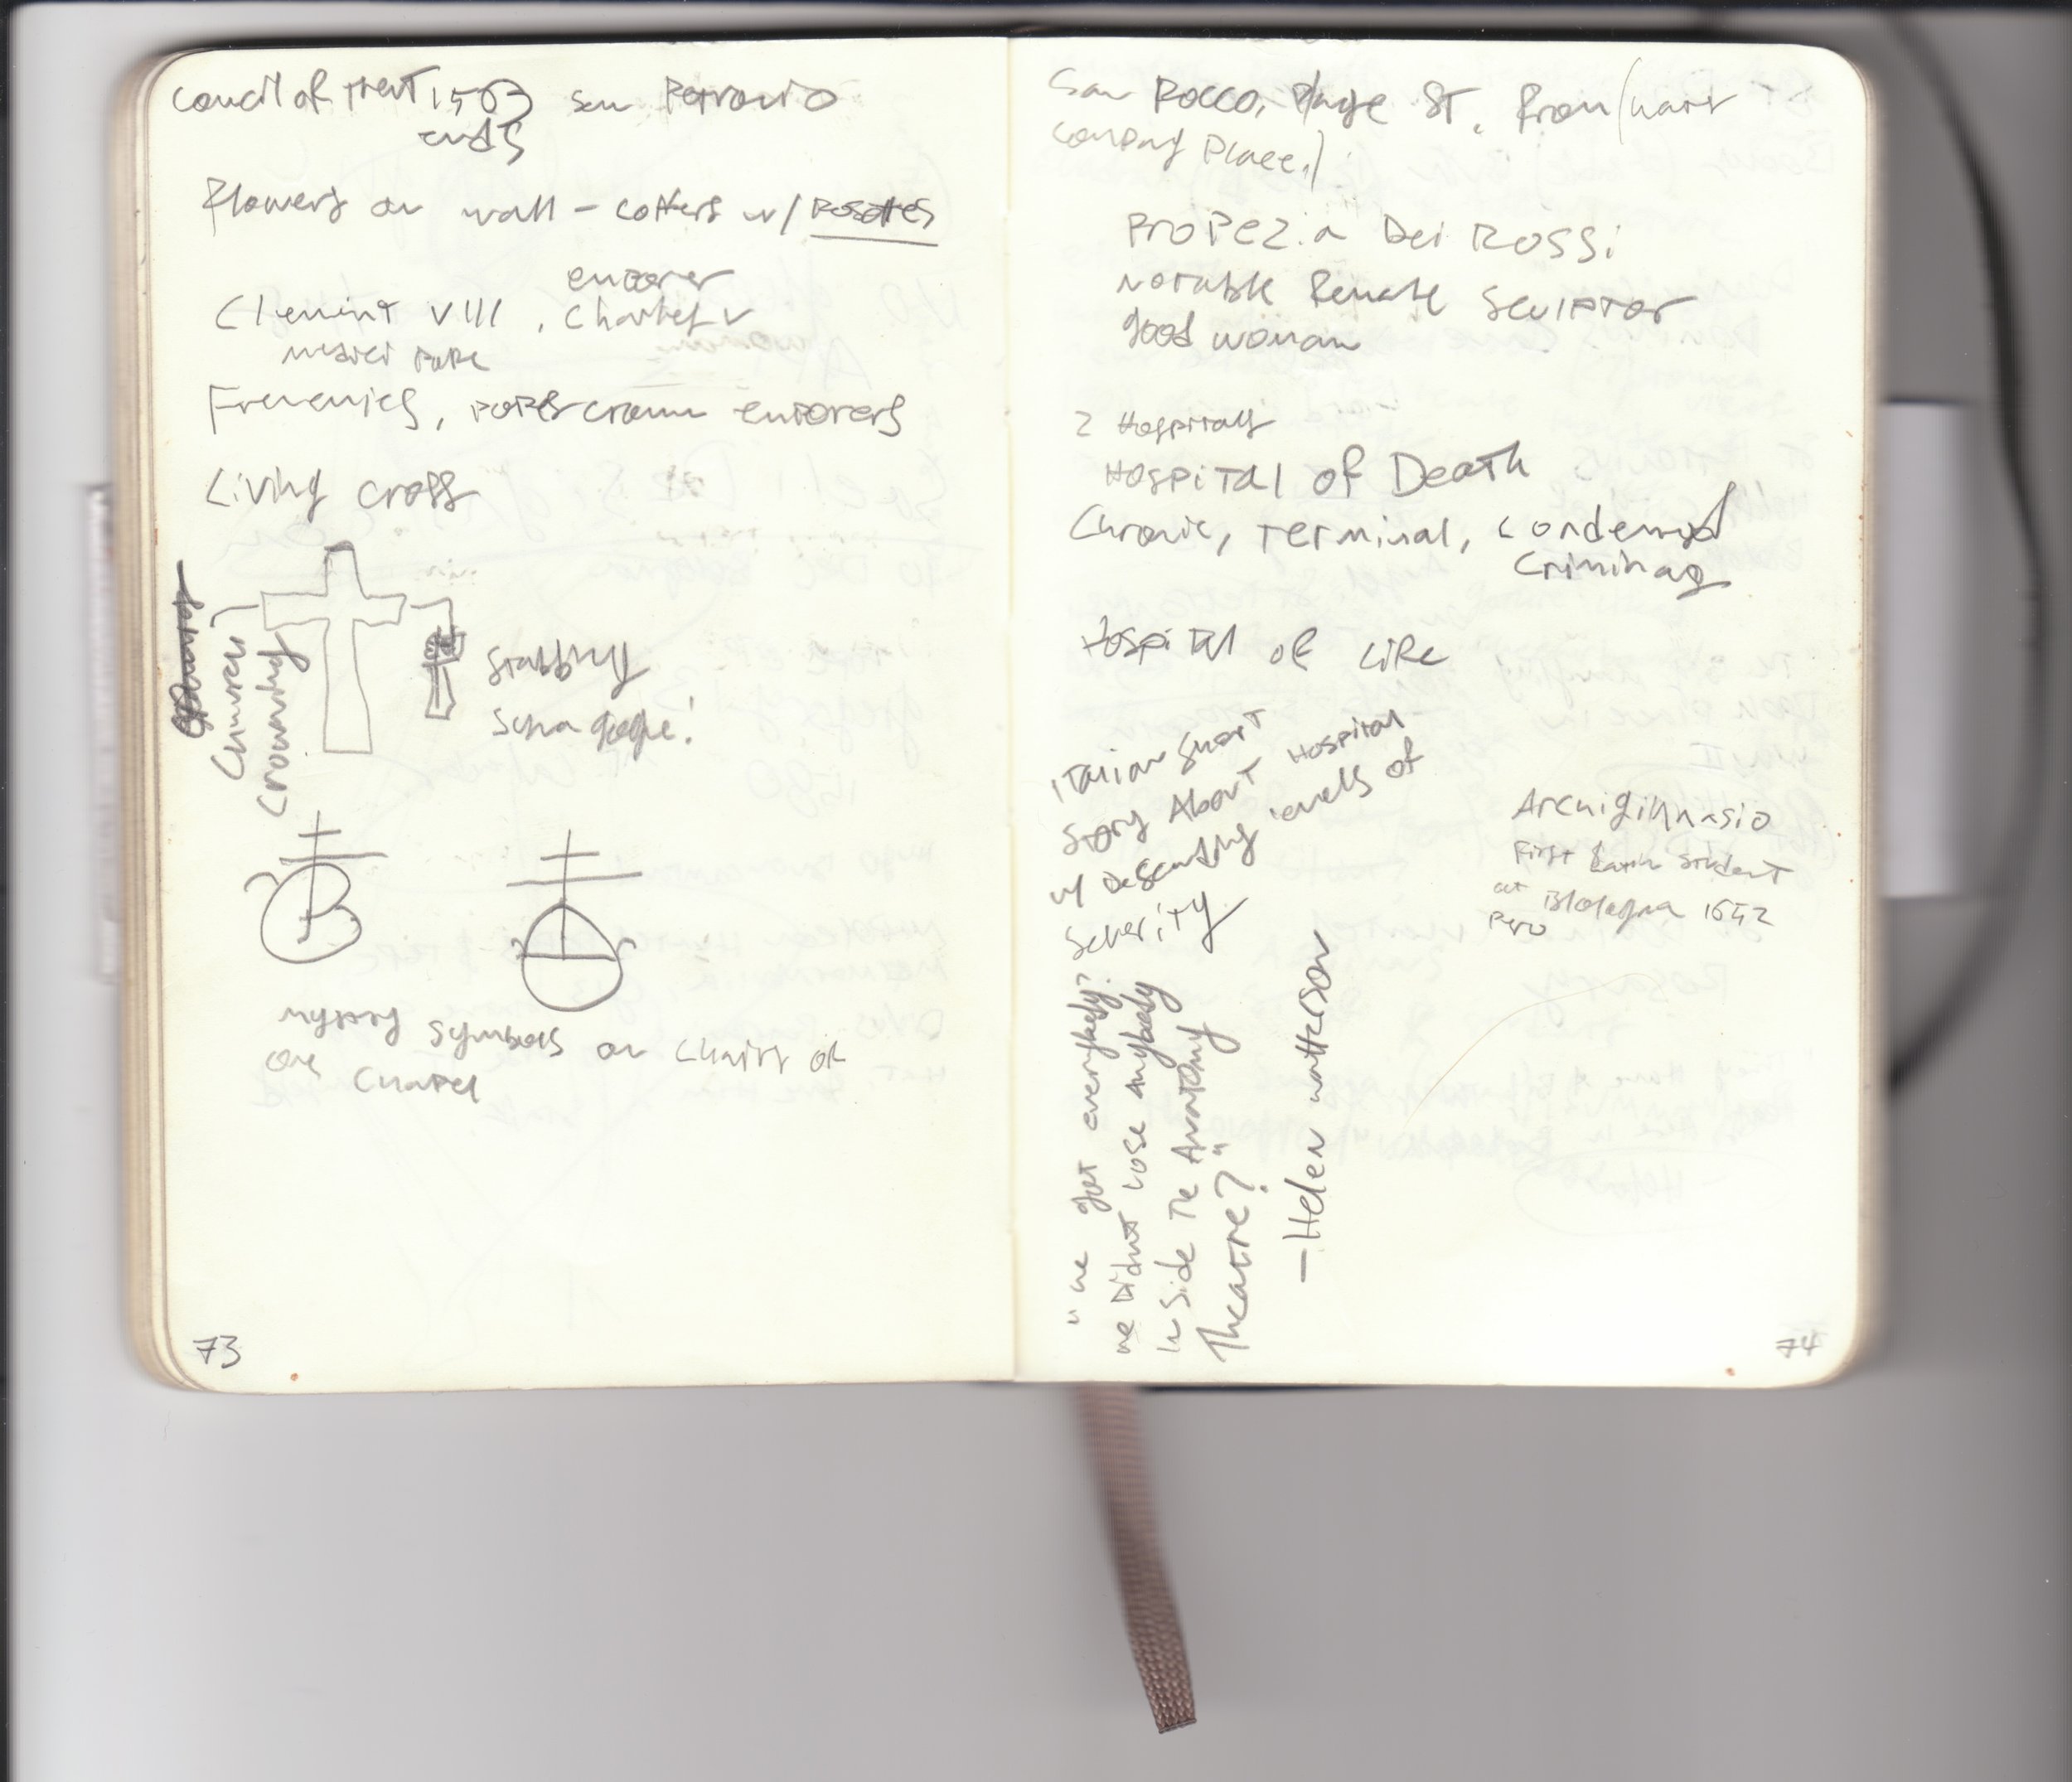 Council of Trent 1563 San Petronio
ends
Flowers on wall - coffers w/ rosettes
emporer
Clemint VIII, Charles V
medici Pope
Frenemies, popes crown emporers
Living cross
Church
crowning
stabbing
synagogue!
mystery symbols on chairs of
one chapel
73
San Rocco, Plague St. from (
company place.)
Propezia Dei Rossi
notable female sculptor
good woman
2 Hospitals
Hospital of Death
Chronic, Terminal, condemned
criminals
Hospital of Life
Italian short
story About Hospital
w/ descending levels of
severity
Archiginnasio
First Latin student
at Blologna 1642
Peru
"we got everybody?
we Didnt lose anybody
in side the Anatomy
Theatre?"
- Helen watterson
74